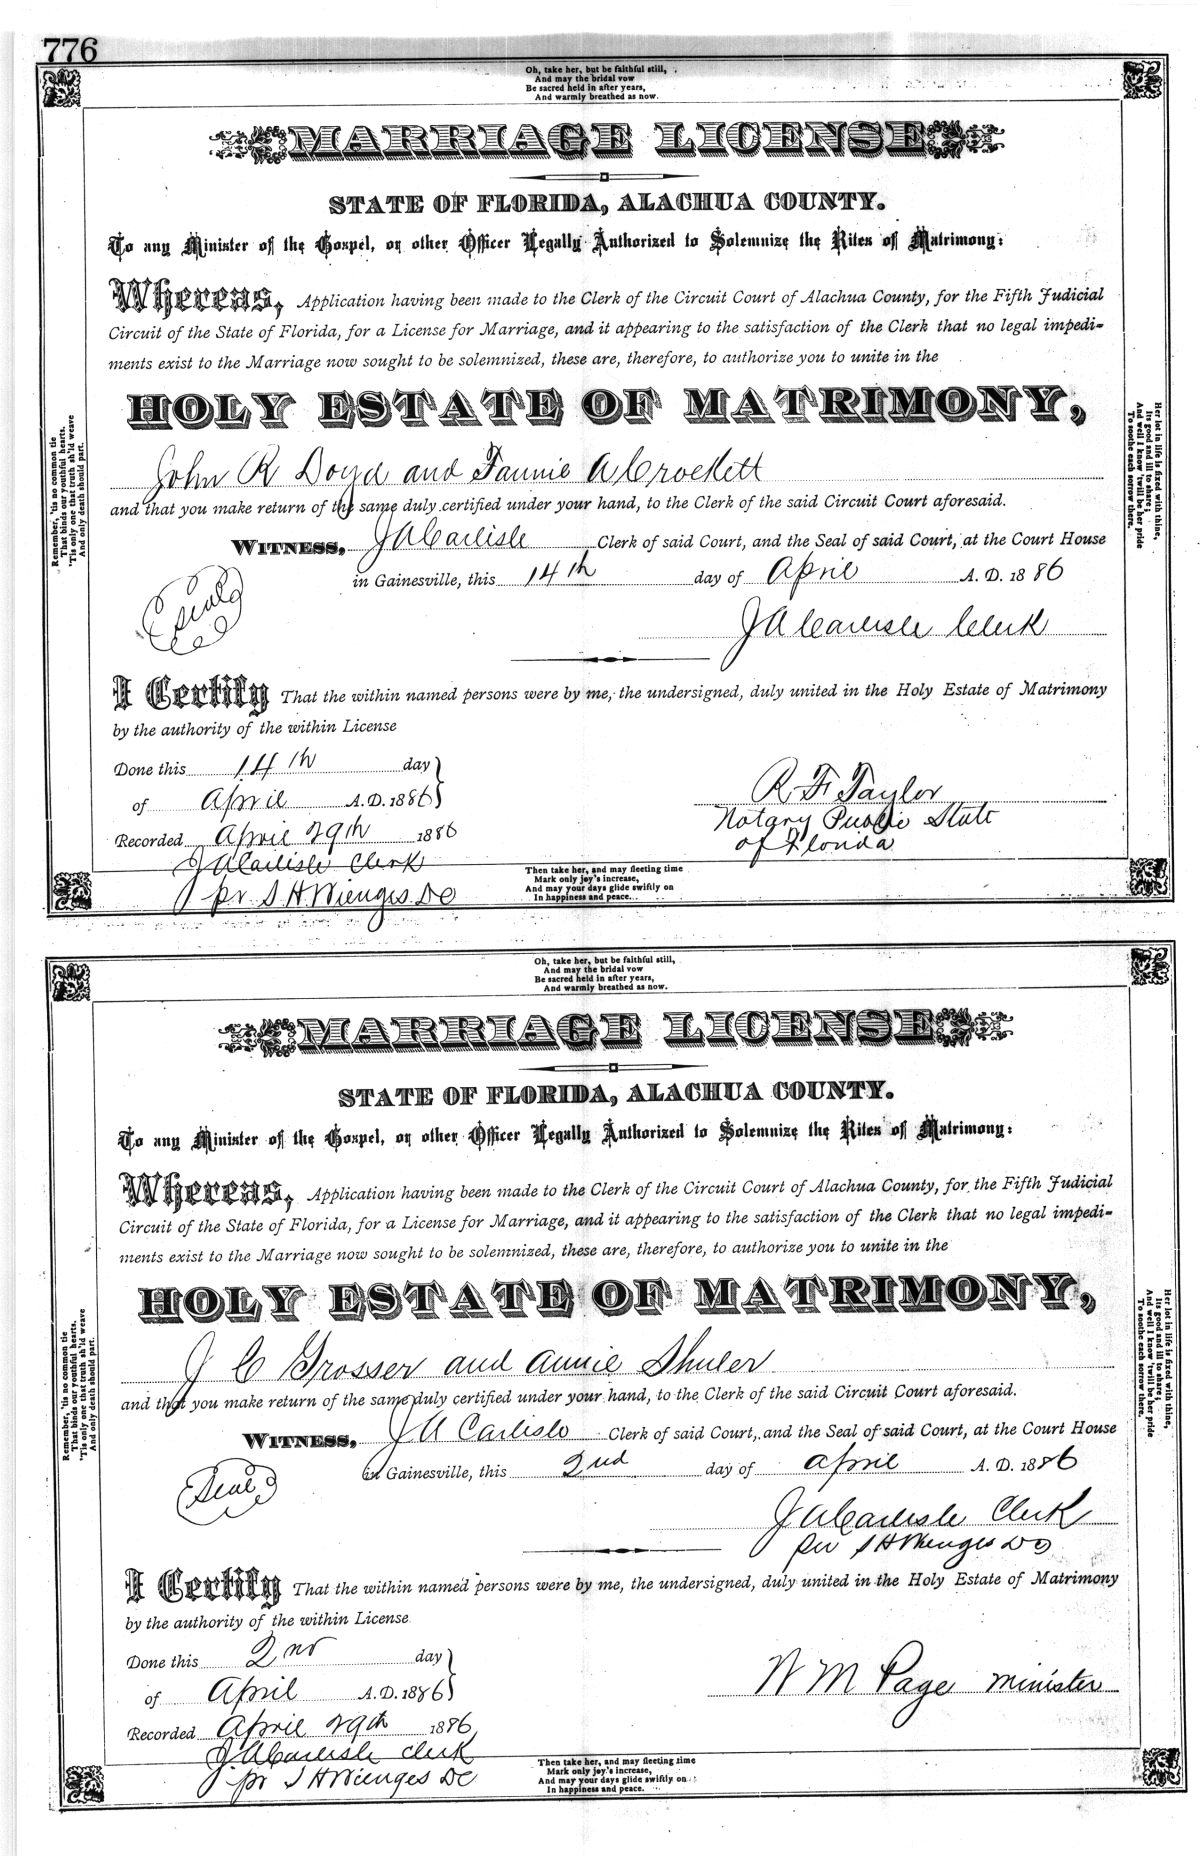 776
Oh, take her, but be faithful still,
And may the bridal vow
Be sacred held in after years,
And warmly breathed as now.
MARRIAGE LICENSE
STATE OF FLORIDA, ALACHUA COUNTY.
To any Minister of the Gospel, or other Officer Legally Authorized to Solemnize the Rites of Matrimony:
Whereas, Application having been made to the Clerk of the Circuit Court of Alachua County, for the Fifth Judicial
Circuit of the State of Florida, for a License for Marriage, and it appearing to the satisfaction of the Clerk that no legal impedi-
ments exist to the Marriage now sought to be solemnized, these are, therefore, to authorize you to unite in the
HOLY ESTATE OF MATRIMONY,
John R Doyd and Fannie A Crockett
and that you make return of the same duly certified under your hand, to the Clerk of the said Circuit Court aforesaid.
WITNESS, J A Carlisle Clerk of said Court, and the Seal of said Court, at the Court House
in Gainesville, this 14th day of April A. D. 1886
Seal
J A Carlisle Clerk
I Certify That the within named persons were by me, the undersigned, duly united in the Holy Estate of Matrimony
by the authority of the within License
Done this 14th day
of April A.D. 1886
R F Taylor
Notary Public State
of Florida
Recorded April 29th 1886
J A Carlisle Clerk
pr S H Wienges DC
Then take her, and may fleeting time
Mark only joy's increase,
And may your days glide swiftly on
In happiness and peace.
Remember, 'tis no common tie
That binds our youthful hearts,
'Tis only one that truth sh'ld weave
And only death should part.
Her lot in life is fixed with thine,
Its good and ill to share;
And well I know 'twill be her pride
To soothe each sorrow there.
Oh, take her, but be faithful still,
And may the bridal vow
Be sacred held in after years,
And warmly breathed as now.
MARRIAGE LICENSE
STATE OF FLORIDA, ALACHUA COUNTY.
To any Minister of the Gospel, or other Officer Legally Authorized to Solemnize the Rites of Matrimony:
Whereas, Application having been made to the Clerk of the Circuit Court of Alachua County, for the Fifth Judicial
Circuit of the State of Florida, for a License for Marriage, and it appearing to the satisfaction of the Clerk that no legal impedi-
ments exist to the Marriage now sought to be solemnized, these are, therefore, to authorize you to unite in the
HOLY ESTATE OF MATRIMONY,
J C Grosser and Annie Shuler
and that you make return of the same duly certified under your hand, to the Clerk of the said Circuit Court aforesaid.
WITNESS, J A Carlisle Clerk of said Court, and the Seal of said Court, at the Court House
in Gainesville, this 2nd day of April A. D. 1886
Seal
J A Carlisle Clerk
per S H Wienges DC
I Certify That the within named persons were by me, the undersigned, duly united in the Holy Estate of Matrimony
by the authority of the within License
Done this 2nd day
of April A.D. 1886
W M Page minister
Recorded April 29th 1886
J A Carlisle Clerk
pr S H Wienges DC
Then take her, and may fleeting time
Mark only joy's increase,
And may your days glide swiftly on
In happiness and peace.
Remember, 'tis no common tie
That binds our youthful hearts,
'Tis only one that truth sh'ld weave
And only death should part.
Her lot in life is fixed with thine,
Its good and ill to share;
And well I know 'twill be her pride
To soothe each sorrow there.